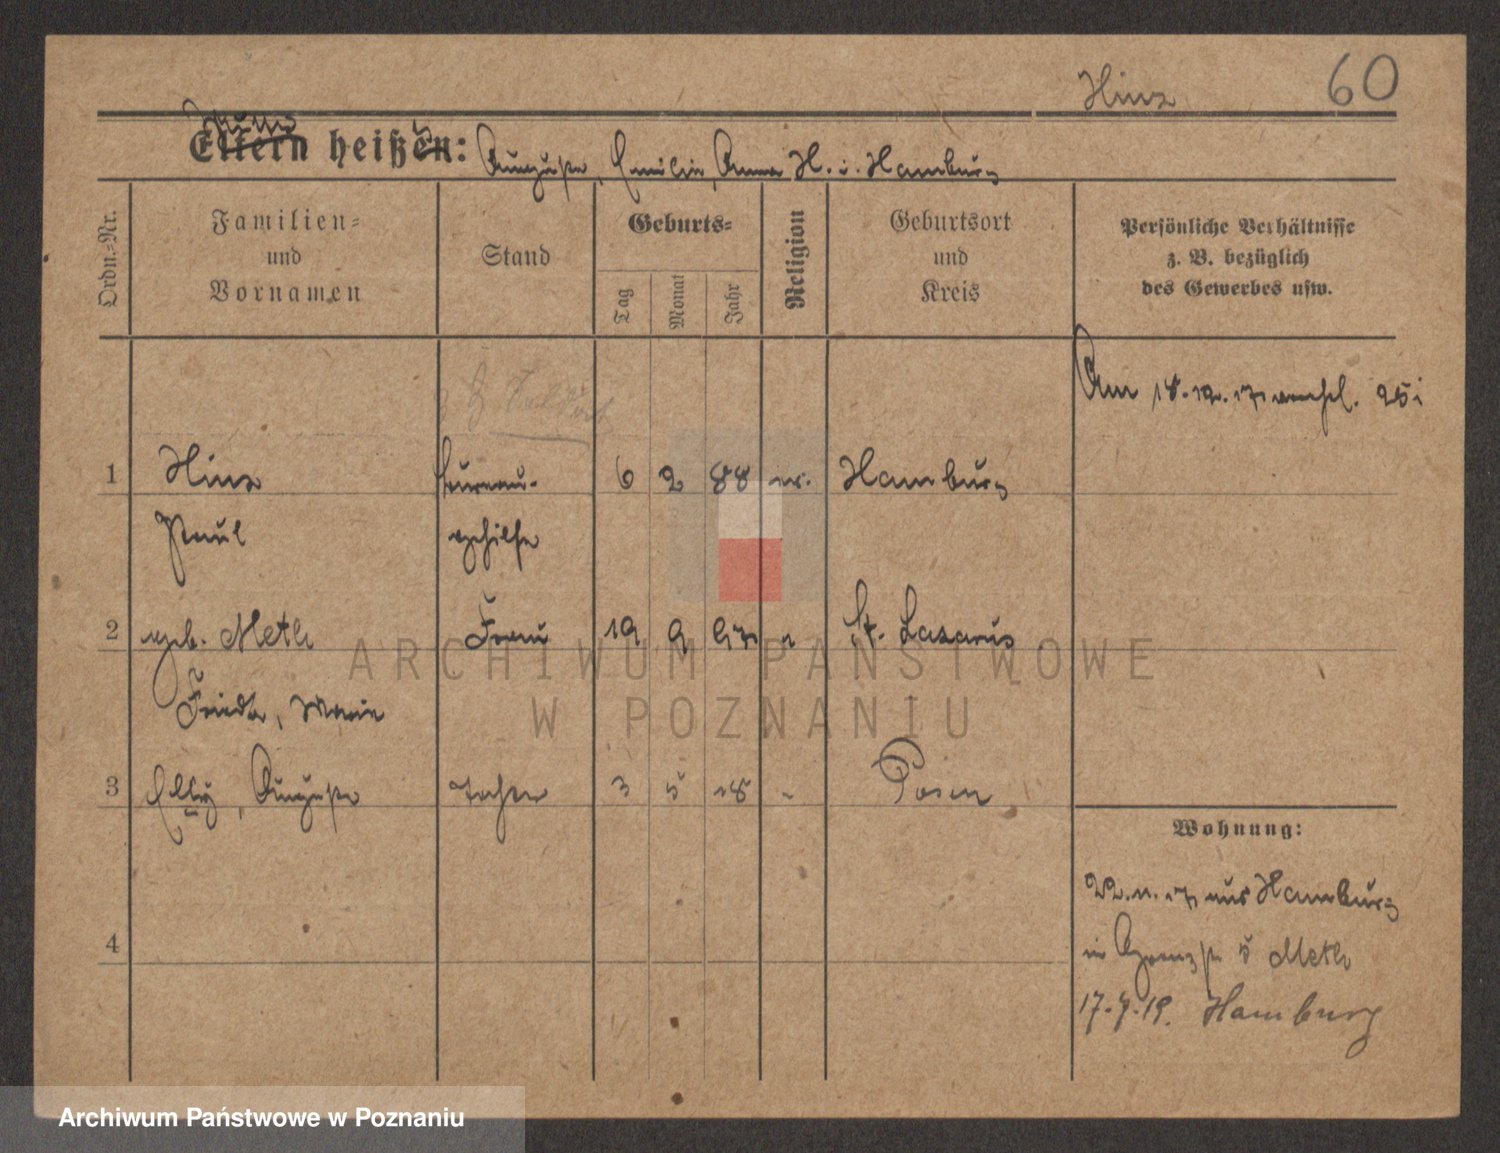 Hinz 60
Eltern heißen: Auguste, Emilie, Anna H. i. Hamburg
Ordn.-Nr.
Familien-
und
Vornamen
Stand
Geburts-
Tag
Monat
Jahr
Religion
Geburtsort
und
Kreis
Persönliche Verhältnisse
z. B. bezüglich
des Gewerbes usw.
Am 18.12.17 verehel.
1 Hinz Bureau- 6 2 88 ev. Hamburg
Paul gehilfe
2 geb. Meth Frau 19 9 97 " St. Lazarus
Frieda, Marie
3 Elly, Auguste Tochter 3 5 18 " Posen
Wohnung:
22.11.17 aus Hamburg
4
in Grenzstr 5 Meth
17.7.19. Hamburg
ARCHIWUM PAŃSTWOWE
W POZNANIU
Archiwum Państwowe w Poznaniu